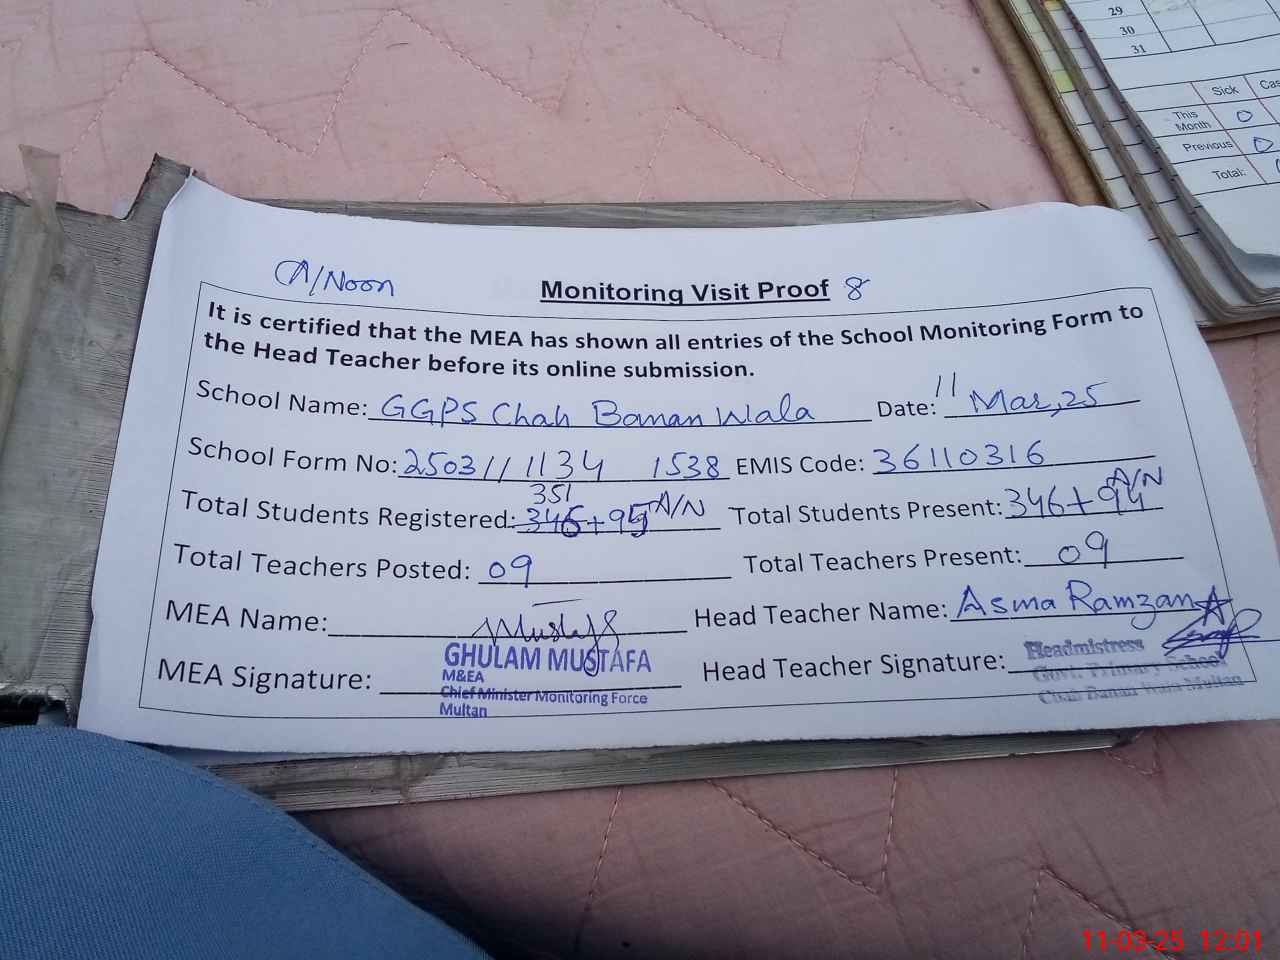 29
30
31
Sick Cas
This Month 0
Previous 0
Total:
A/Noon
Monitoring Visit Proof 8
It is certified that the MEA has shown all entries of the School Monitoring Form to
the Head Teacher before its online submission.
School Name: GGPS Chah Banan Wala Date: 11 Mar, 25
School Form No: 2503 11 1134 1538 EMIS Code: 36110316
351
Total Students Registered: 346+95 A/N Total Students Present: 346+94 A/N
Total Teachers Posted: 09 Total Teachers Present: 09
MEA Name: Head Teacher Name: Asma Ramzan
MEA Signature: Head Teacher Signature:
GHULAM MUSTAFA
M&EA
Chief Minister Monitoring Force
Multan
Headmistress
Govt. Primary School
Chah Banan Wala Multan
11-03-25 12:01